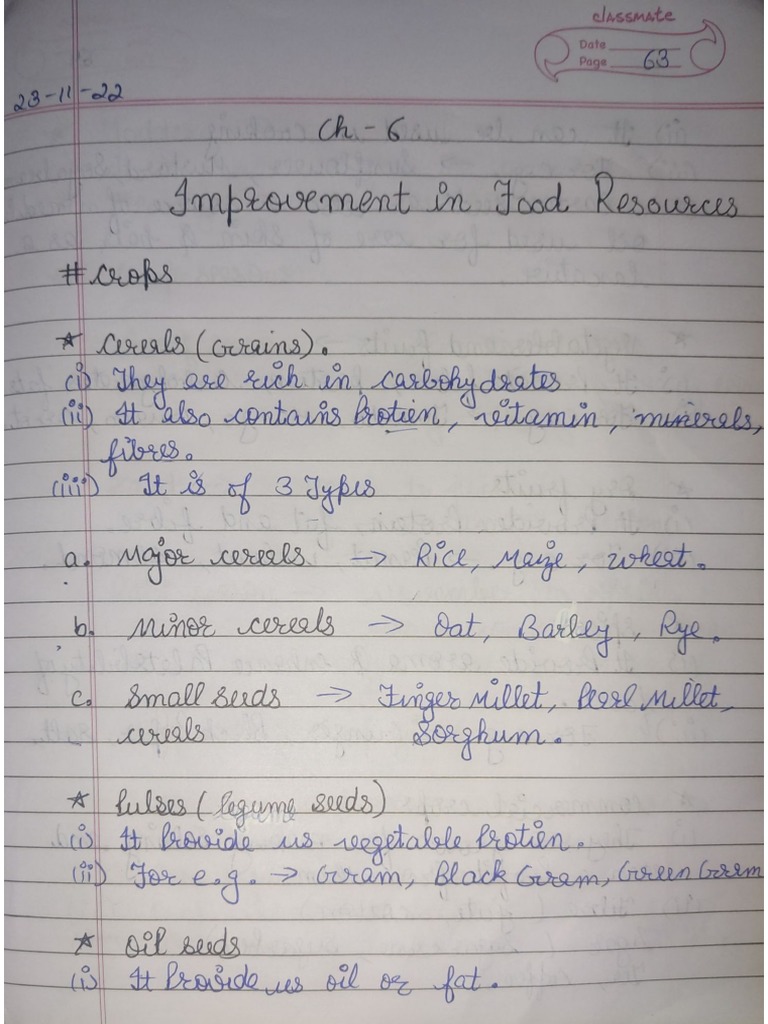 classmate
Date
Page 63
23-11-22
Ch-6
Improvement in Food Resources
# crops
* cereals (Grains).
(i) They are rich in carbohydrates
(ii) It also contains Protien, vitamin, minerals,
fibres.
(iii) It is of 3 Types
a. Major cereals → Rice, Maize, wheat.
b. Minor cereals → Oat, Barley, Rye.
c. Small seeds → Finger Millet, Pearl Millet,
cereals Sorghum.
* Pulses (legume seeds)
(i) It Provide us vegetable Protien.
(ii) For e.g. → Gram, Black Gram, Green Gram
* oil seeds
(i) It Provide us oil or fat.